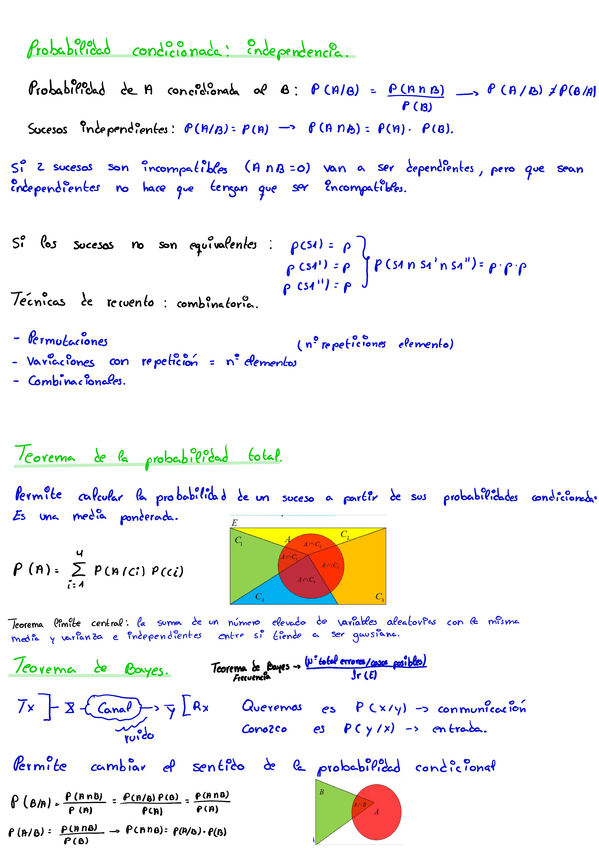 Probabilidad condicionada: independencia.
Probabilidad de A concidionada al B: P(A/B) = P(A∩B) / P(B) → P(A/B) ≠ P(B/A)
Sucesos independientes: P(A/B) = P(A) → P(A∩B) = P(A) · P(B).
Si 2 sucesos son incompatibles (A∩B=0) van a ser dependientes, pero que sean
independientes no hace que tengan que ser incompatibles.
Si los sucesos no son equivalentes :
P(S1) = p
P(S1') = p
P(S1'') = p
P(S1 ∩ S1' ∩ S1'') = p·p·p
Técnicas de recuento : combinatoria.
- Permutaciones
- Variaciones con repetición = nº elementos
(nº repeticiones elemento)
- Combinacionales.
Teorema de la probabilidad total.
Permite calcular la probabilidad de un suceso a partir de sus probabilidades condicionada.
Es una media ponderada.
P(A) = 4 Σ i=1 P(A/Ci) P(Ci)
E
C₁
C₂
A
A∩C₂
A∩C₁
A∩C₃
A∩C₄
C₄
C₃
Teorema límite central: la suma de un número elevado de variables aleatorias con la misma
media y varianza e independientes entre si tiende a ser gausiana.
Teorema de Bayes.
Teorema de Bayes → (nº total errores/casos posibles)
Frecuencia
fr(E)
Tx ] - x̄ - Canal → ȳ [ Rx
ruido
Queremos es P(x/y) → conmunicación
Conozco es P(y/x) → entrada.
Permite cambiar el sentido de la probabilidad condicional
P(B/A) = P(A∩B) / P(A) = P(A/B) P(B) / P(A) = P(A∩B) / P(A)
P(A/B) = P(A∩B) / P(B) → P(A∩B) = P(A/B) · P(B)
B
A∩B
A